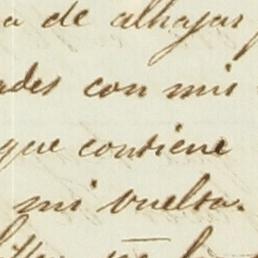 a de alhajas
ades con mis
que contiene
mi vuelta.